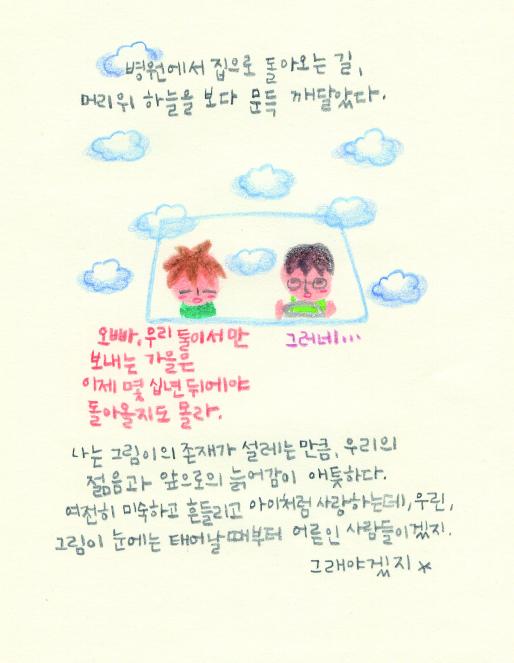 병원에서 집으로 돌아오는 길,
머리위 하늘을 보다 문득 깨달았다.
오빠, 우리 둘이서만
보내는 가을은
이제 몇 십년 뒤에야
돌아올지도 몰라.
그러네...
나는 그림이의 존재가 설레는 만큼, 우리의
젊음과 앞으로의 늙어감이 애틋하다.
여전히 미숙하고 흔들리고 아이처럼 사랑하는데, 우린,
그림이 눈에는 태어날 때부터 어른인 사람들이겠지.
그래야겠지 *